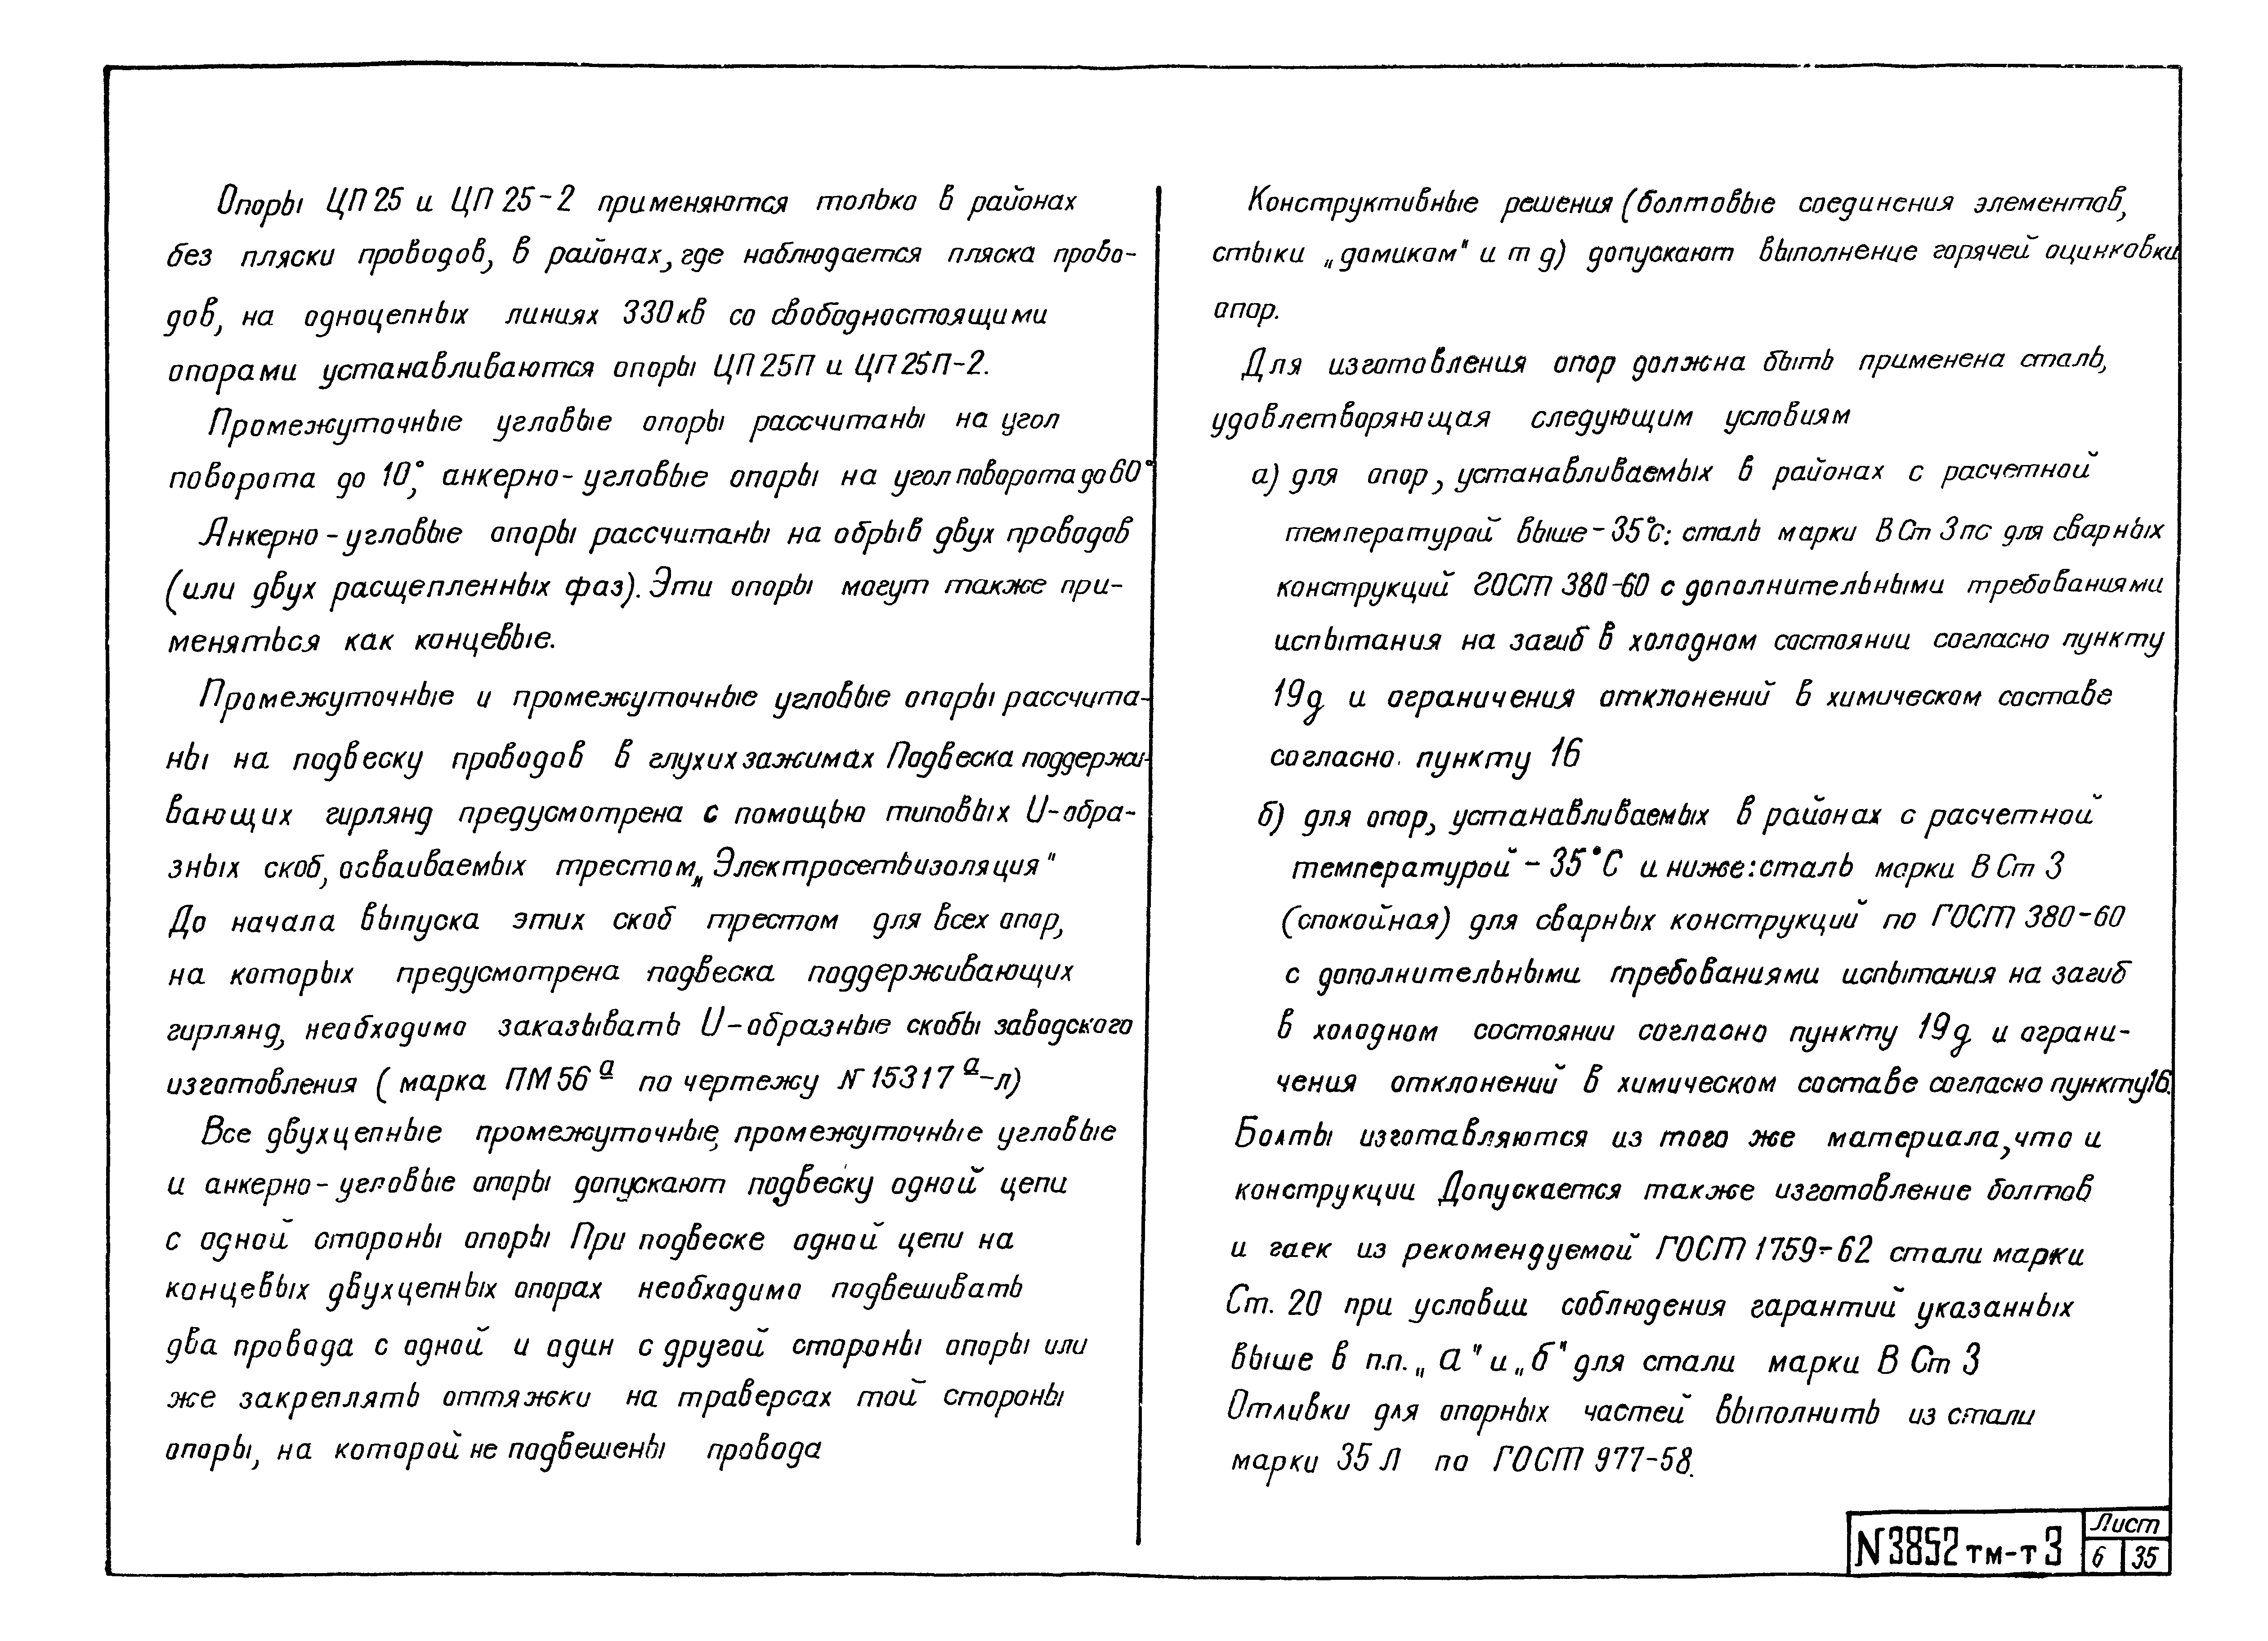 Опоры ЦП25 и ЦП25-2 применяются только в районах
без пляски проводов, в районах, где наблюдается пляска прово-
дов, на одноцепных линиях 330кв со свободностоящими
опорами устанавливаются опоры ЦП25П и ЦП25П-2.
Промежуточные угловые опоры рассчитаны на угол
поворота до 10°, анкерно-угловые опоры на угол поворота до 60°
Анкерно-угловые опоры рассчитаны на обрыв двух проводов
(или двух расщепленных фаз). Эти опоры могут также при-
меняться как концевые.
Промежуточные и промежуточные угловые опоры рассчита-
ны на подвеску проводов в глухих зажимах Подвеска поддержи-
вающих гирлянд предусмотрена с помощью типовых U-обра-
зных скоб, осваиваемых трестом „Электросетьизоляция"
До начала выпуска этих скоб трестом для всех опор,
на которых предусмотрена подвеска поддерживающих
гирлянд, необходимо заказывать U-образные скобы заводского
изготовления (марка ПМ56а по чертежу N 15317а-л)
Все двухцепные промежуточные, промежуточные угловые
и анкерно-угловые опоры допускают подвеску одной цепи
с одной стороны опоры При подвеске одной цепи на
концевых двухцепных опорах необходимо подвешивать
два провода с одной и один с другой стороны опоры или
же закреплять оттяжки на траверсах той стороны
опоры, на которой не подвешены провода
Конструктивные решения (болтовые соединения элементов,
стыки „домиком" и т д) допускают выполнение горячей оцинковки
опор.
Для изготовления опор должна быть применена сталь,
удовлетворяющая следующим условиям
а) для опор, устанавливаемых в районах с расчетной
температурой выше -35°С: сталь марки ВСт 3пс для сварных
конструкций ГОСТ 380-60 с дополнительными требованиями
испытания на загиб в холодном состоянии согласно пункту
19д и ограничения отклонений в химическом составе
согласно пункту 16
б) для опор, устанавливаемых в районах с расчетной
температурой -35°С и ниже: сталь марки В Ст 3
(спокойная) для сварных конструкций по ГОСТ 380-60
с дополнительными требованиями испытания на загиб
в холодном состоянии согласно пункту 19д и ограни-
чения отклонений в химическом составе согласно пункту 16.
Болты изготавляются из того же материала, что и
конструкции Допускается также изготовление болтов
и гаек из рекомендуемой ГОСТ 1759-62 стали марки
Ст. 20 при условии соблюдения гарантий указанных
выше в п.п. „а" и „б" для стали марки В Ст 3
Отливки для опорных частей выполнить из стали
марки 35Л по ГОСТ 977-58.
N3852тм-т3
Лист
6 35